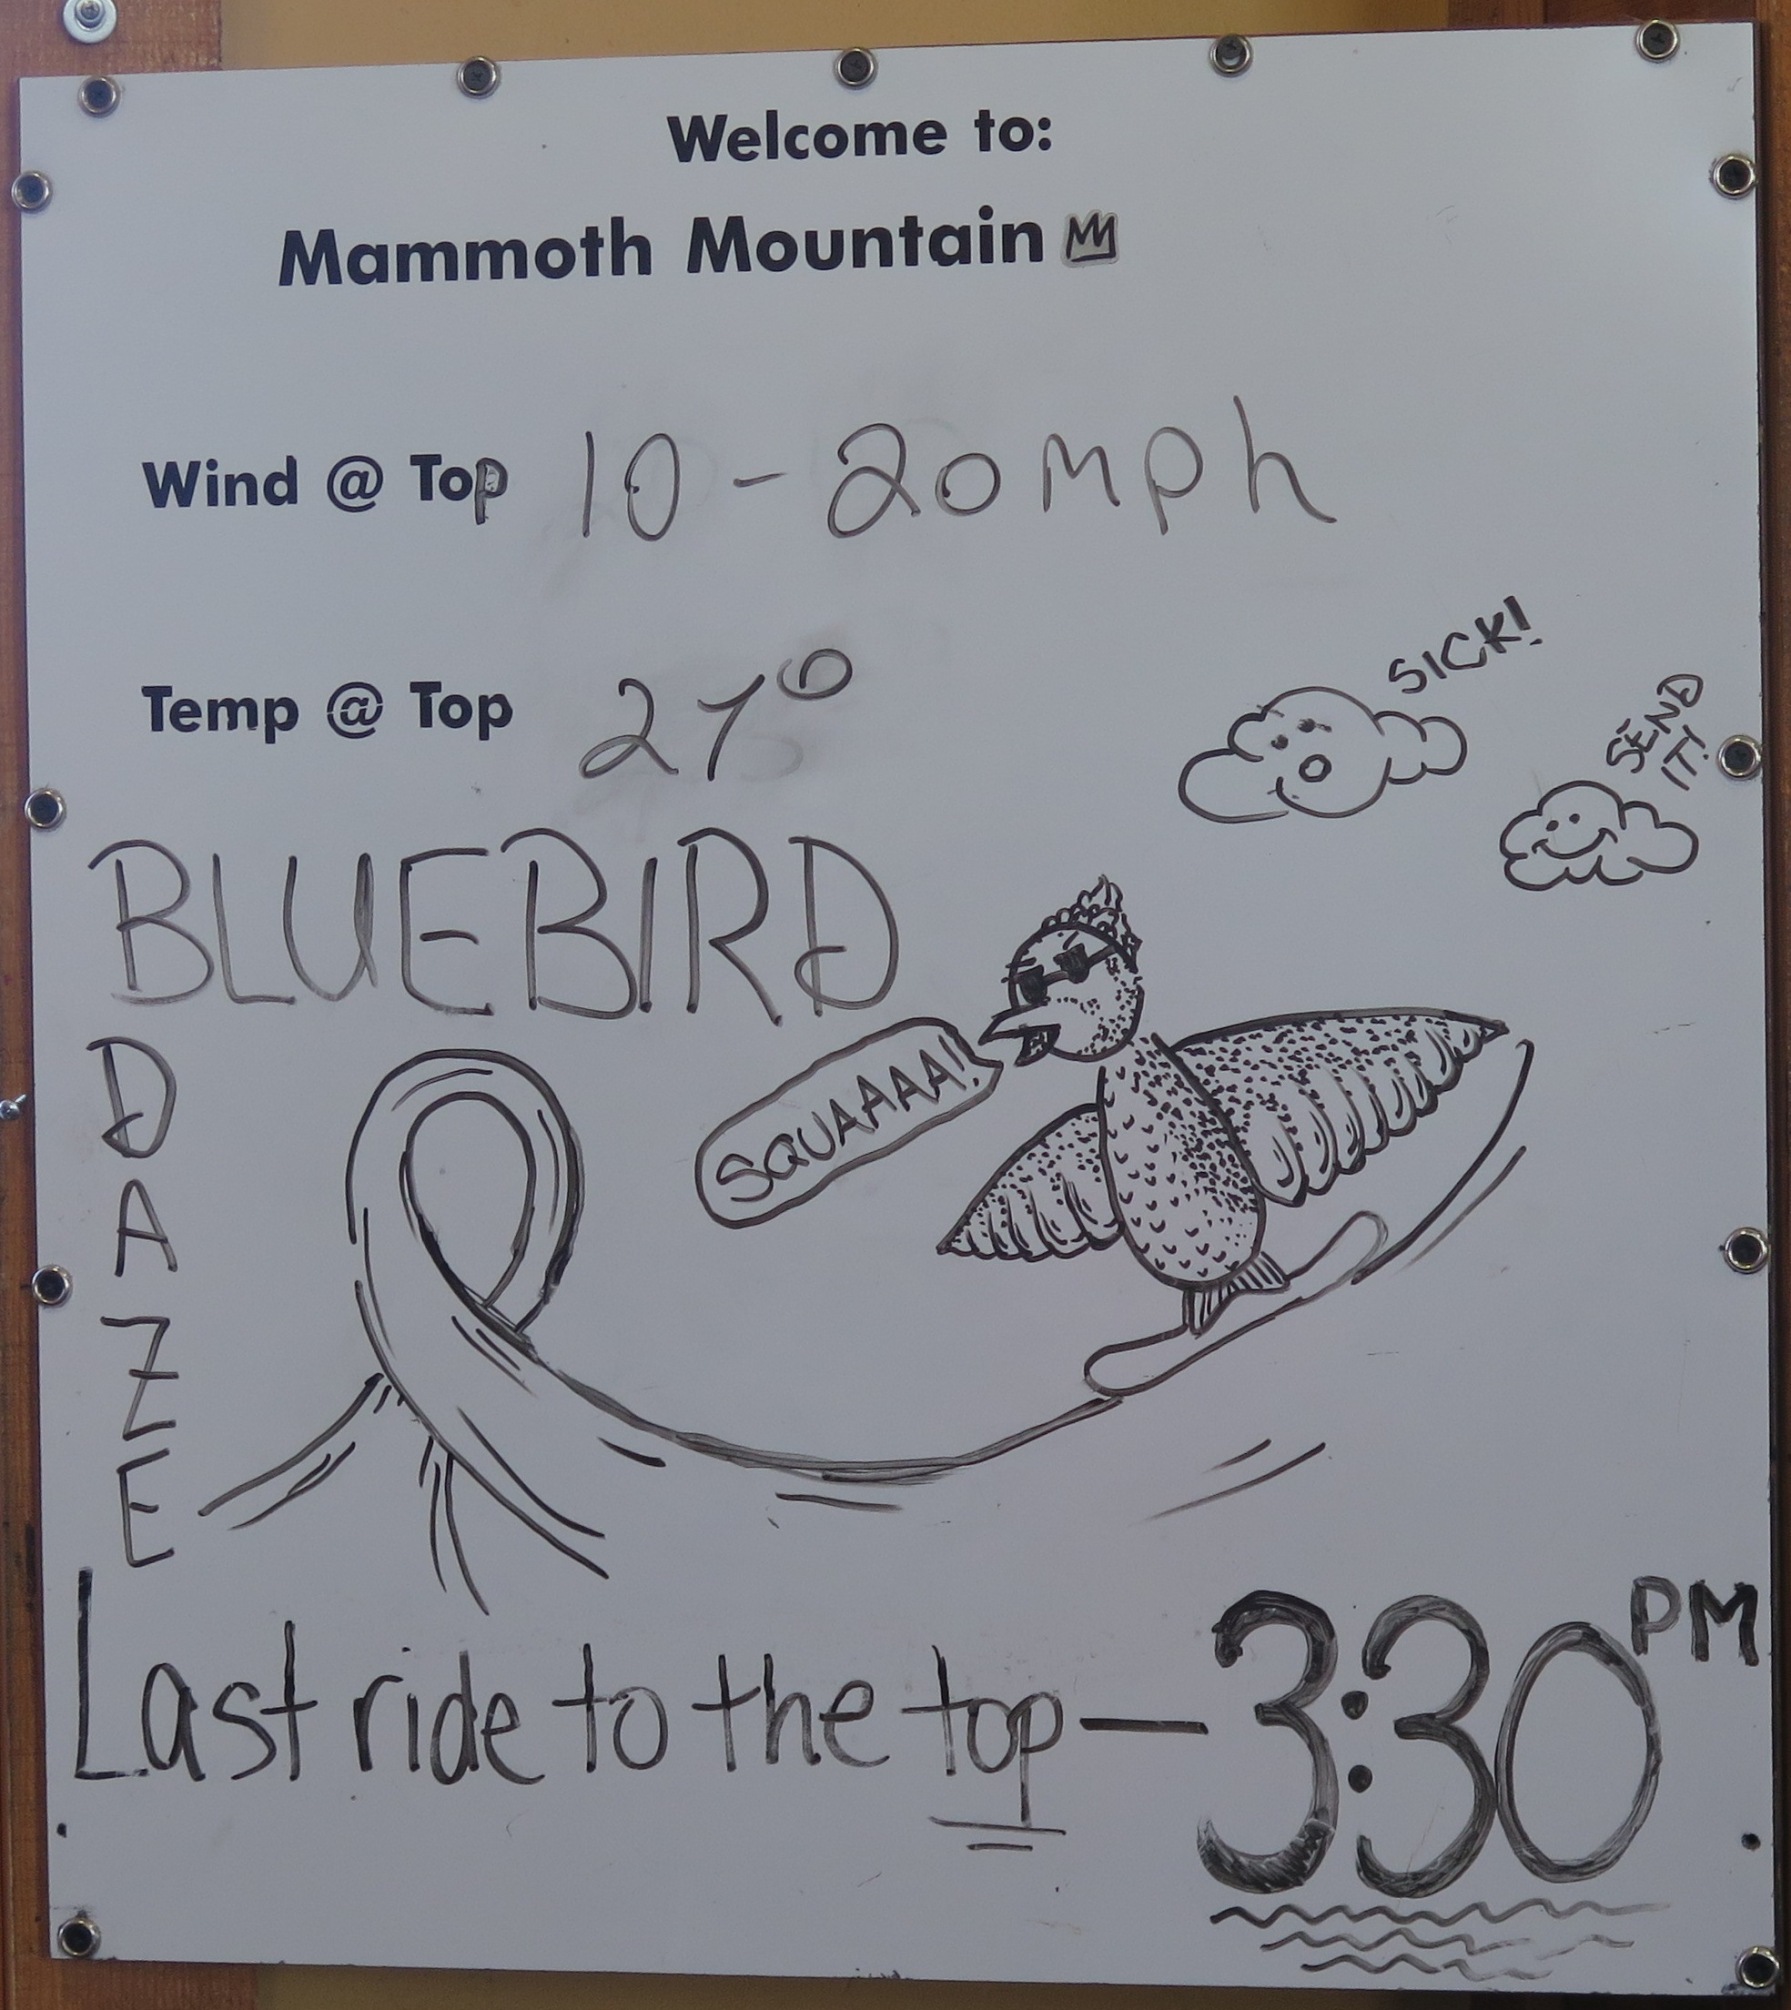 Welcome to:
Mammoth Mountain
Wind @ Top 10-20mph
Temp @ Top 27°
SICK!
SEND
IT!
BLUEBIRD
DAZE
SQUAAAA!
Last ride to the top—3:30PM